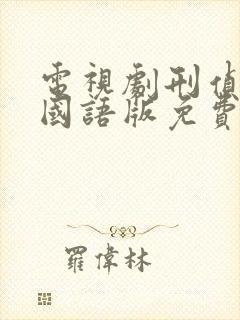 電視劇刑偵
國語版免費
羅偉林